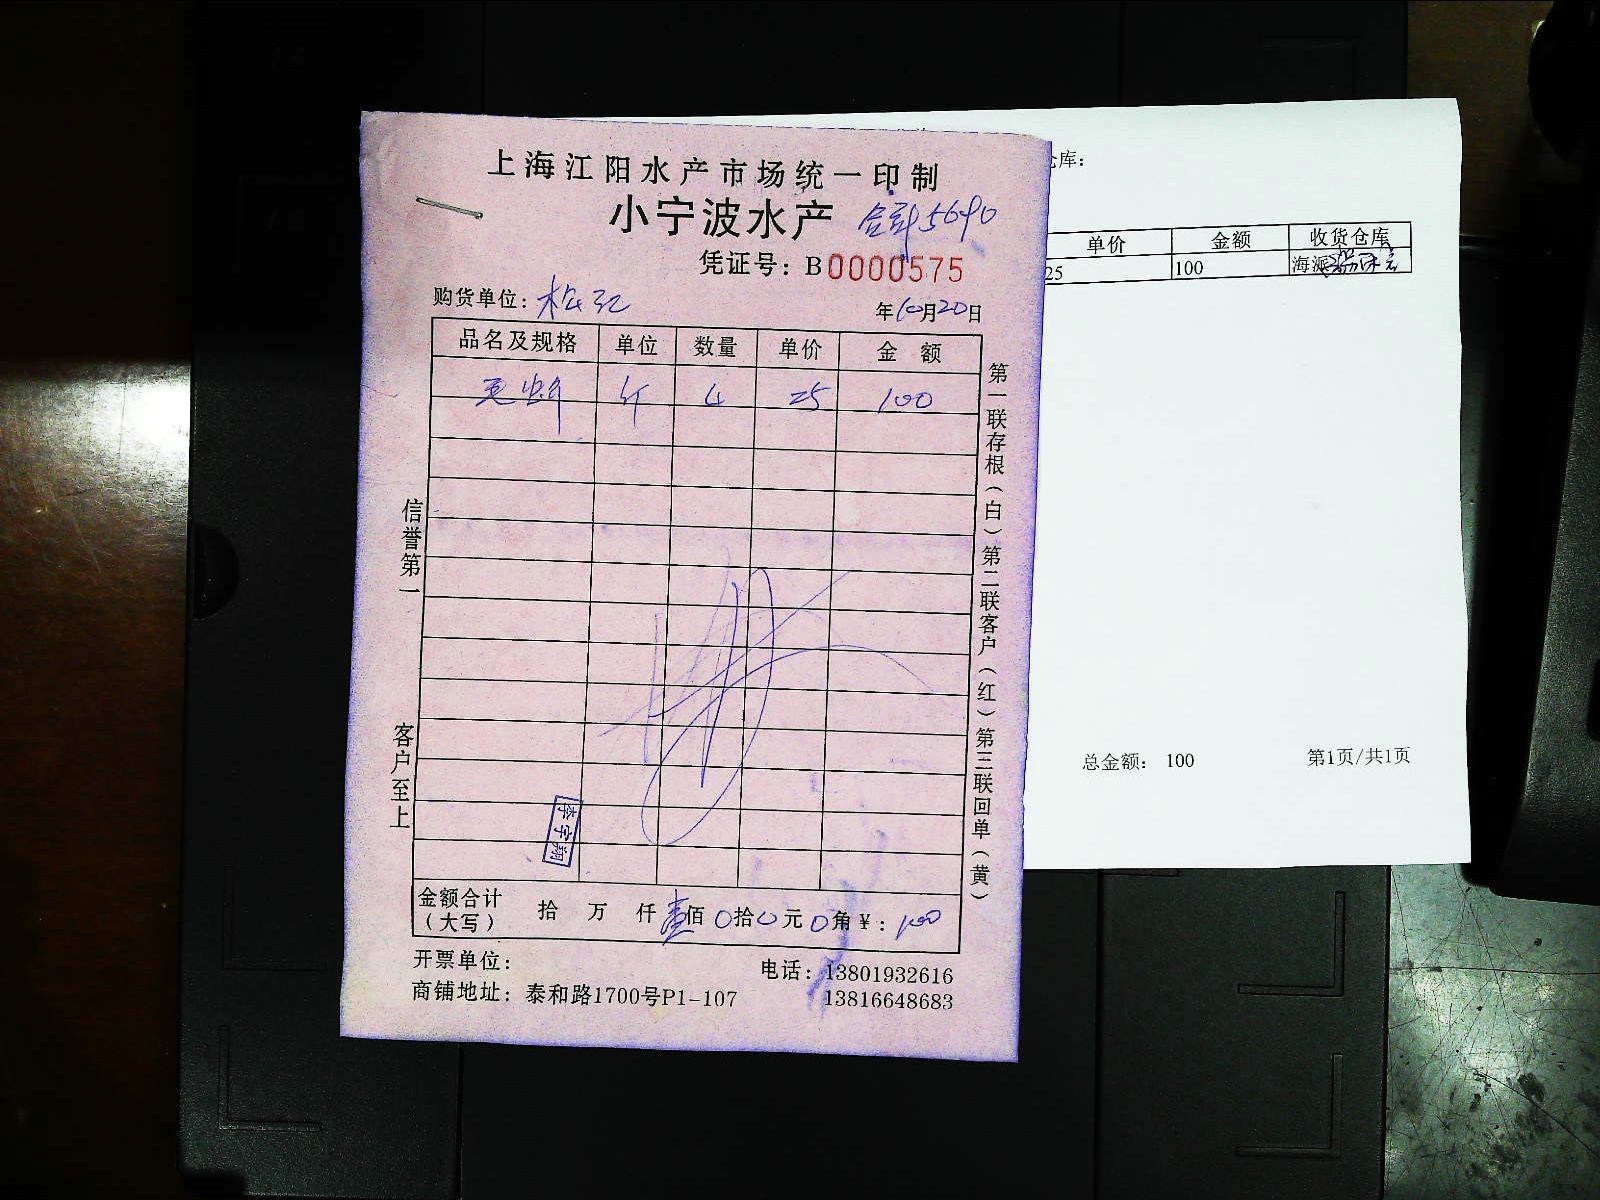 上海江阳水产市场统一印制
小宁波水产
合计5690
凭证号：B0000575
购货单位：松江
年10月20日
品名及规格 单位 数量 单价 金 额
毛蚶 斤 4 25 100
信誉第一
客户至上
第一联存根（白）第二联客户（红）第三联回单（黄）
李宇翔
金额合计（大写） 拾 万 仟 壹佰 0拾 0元 0角 ¥：100
开票单位：
电话：13801932616
商铺地址：泰和路1700号P1-107
13816648683
仓库：
单价 金额 收货仓库
25 100 海派
总金额： 100
第1页/共1页